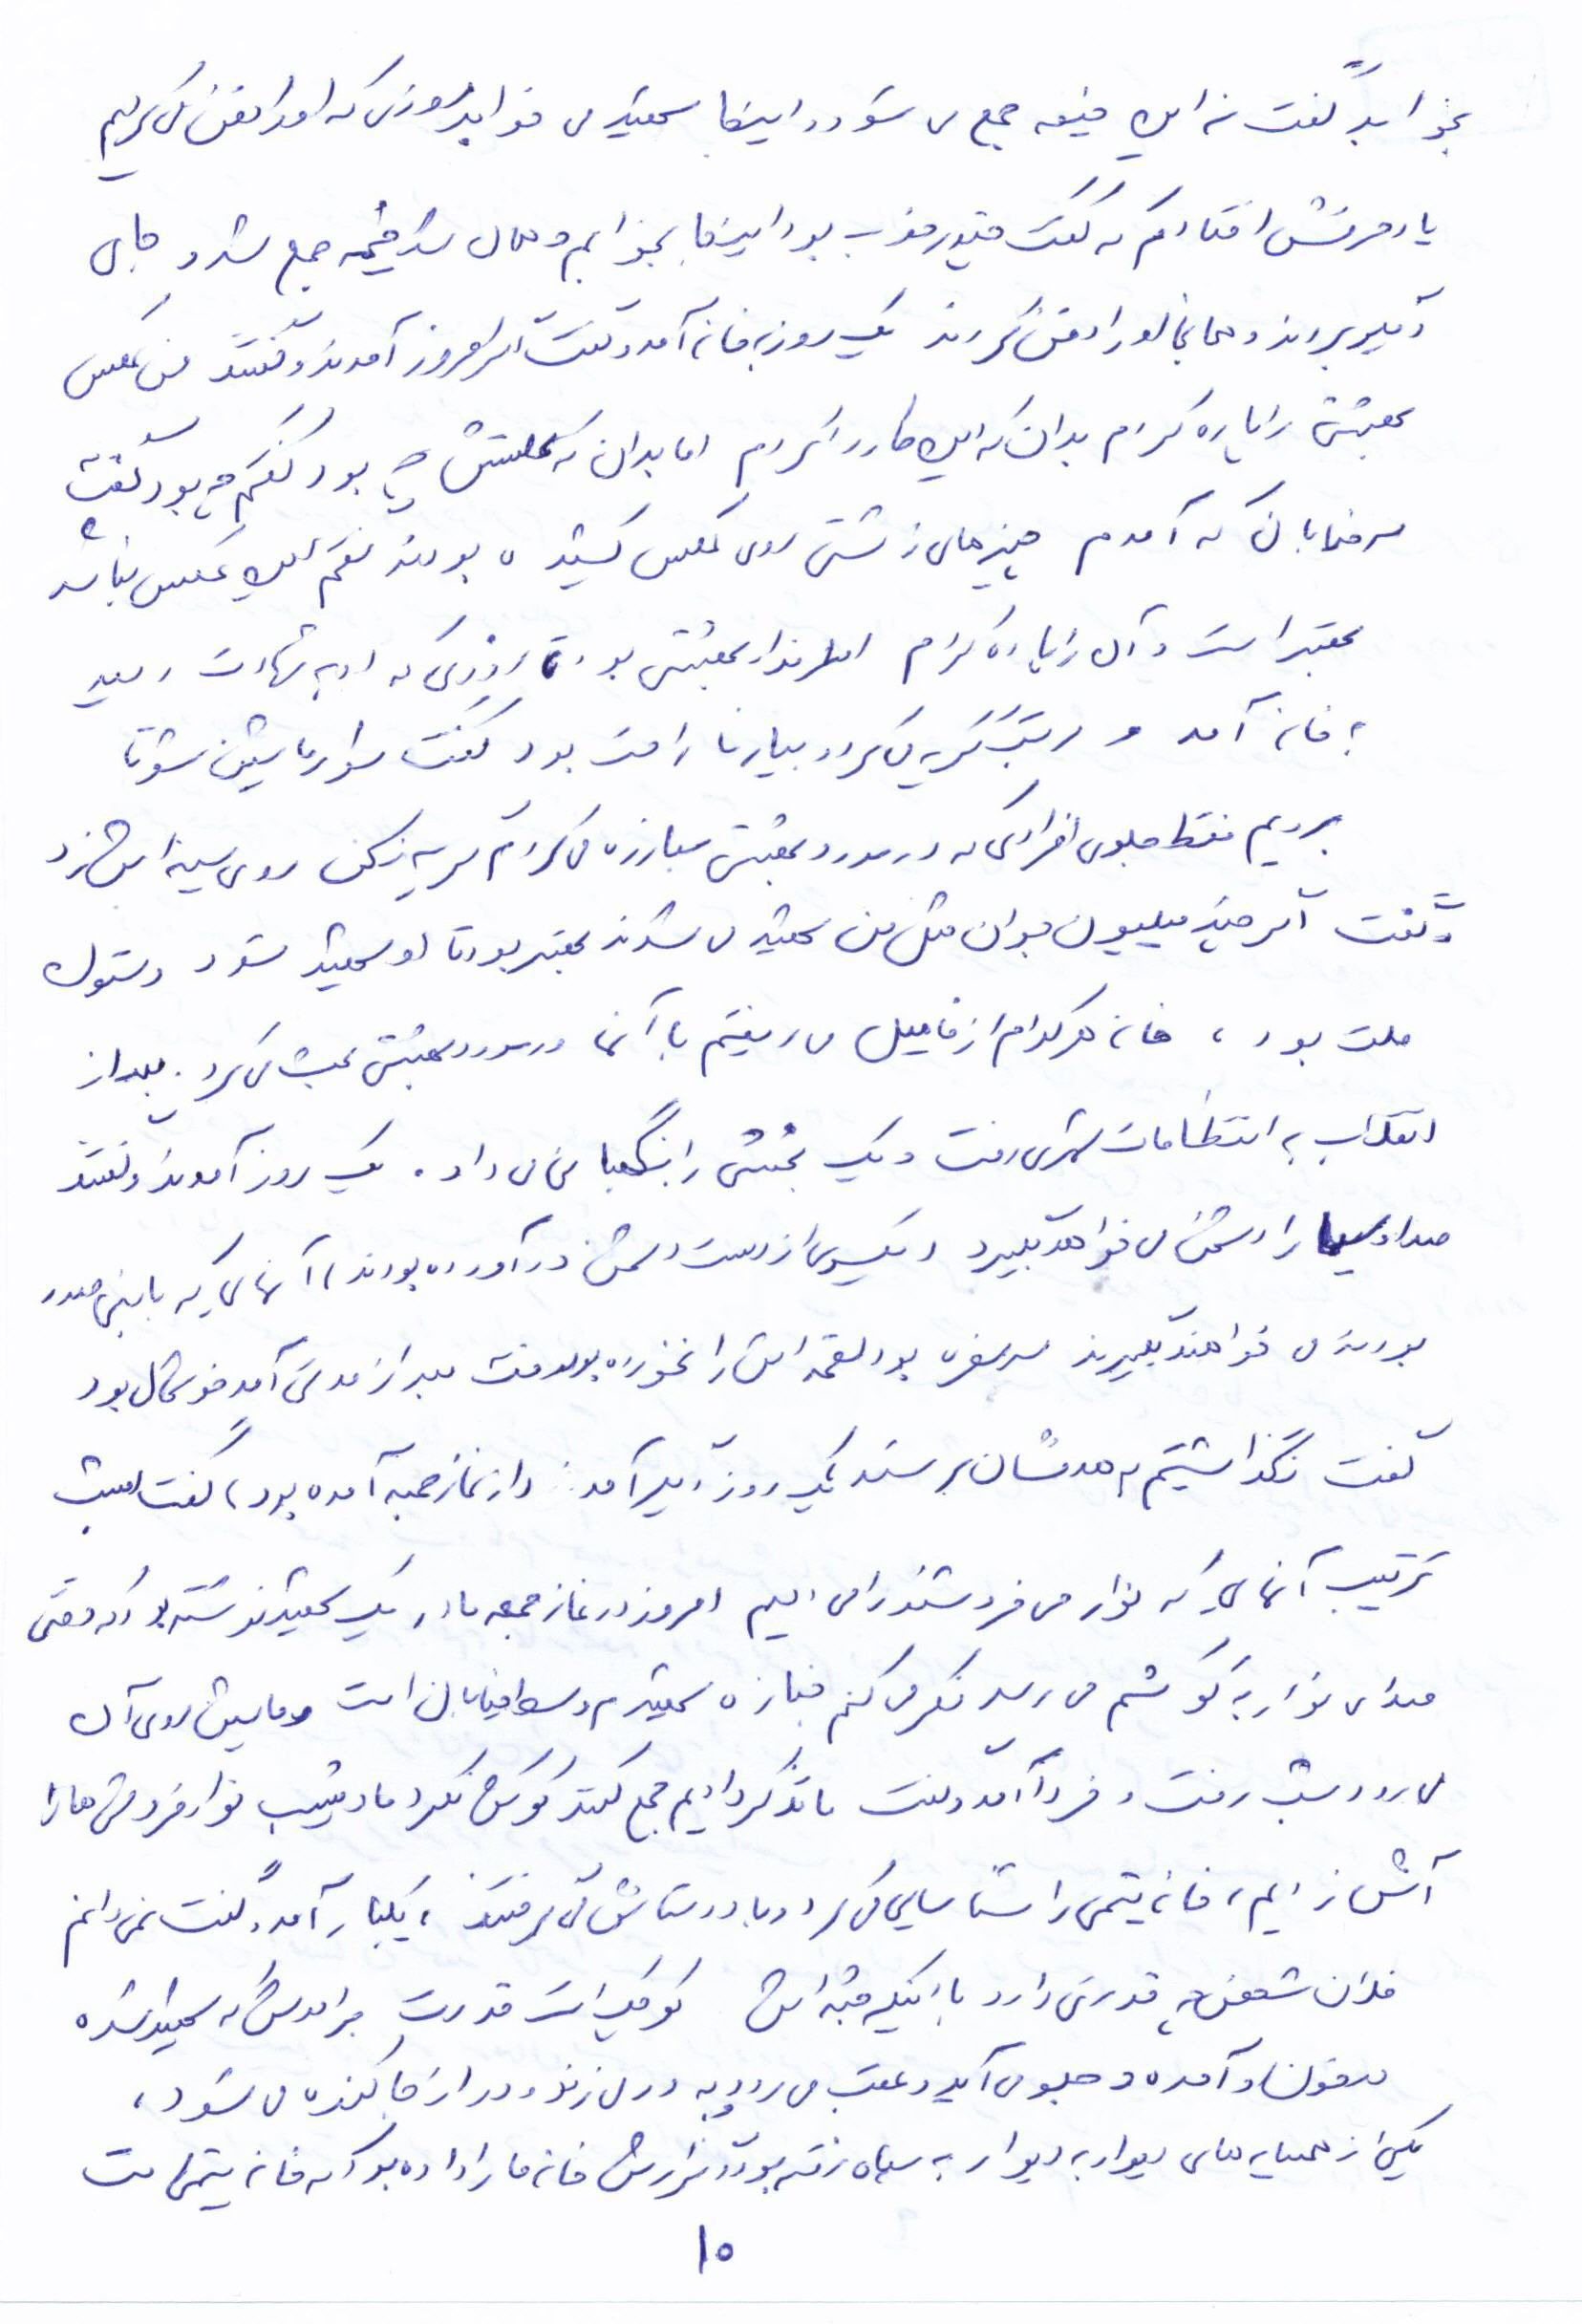 بخوابد گفت نه این خیمه جمع می شود و اینجا شهید می خوابد روزی که او را دفن می کردیم
یاد حرفش افتادم که گفت چقدر خوب بود اینجا بخوابم و همان شد خیمه جمع شد و جای
دیگر بردند و همانجا او را دفن کردند یک روز به خانه آمد و گفت اگر امروز آمدند و گفتند من عکس
بهشتی را پاره کردم بدان که این کار را کردم اما بدان که عکسش چی بود گفتم چه بود گفت
سر خیابان که آمدم چیزهای زشتی روی عکس کشیده بودند گفتم این عکس نباشد
بهتر است و آن را پاره کردم طرفدار بهشتی بود تا روزی که او به شهادت رسید
به خانه آمد و مرتب گریه می کرد و بسیار ناراحت بود گفت سوار ماشین شو تا
برویم فقط جلوی افرادی که در مورد بهشتی مبارزه می کردم گریه نکن روی سینه اش زد
و گفت اگر چند میلیون جوان مثل من شهید می شدند بهتر بود تا او شهید شود و ستون
ملت بود ، خانه هر کدام از فامیل می رفتیم با آنها در مورد بهشتی بحث می کرد . بعد از
انقلاب به انتظامات شهری رفت و یک بخشی را نگهبانی می داد . یک روز آمدند و گفتند
صدا و سیما را دشمن می خواهد بگیرد از دست دشمن در آورده بودند ، آنهایی که با بنی صدر
بودند می خواهند بگیرند سر سفره بود لقمه اش را نخورده بود رفت بعد از مدتی آمد خوشحال بود
گفت نگذاشتیم به هدفشان برسند یک روز دیگر آمد و از نماز جمعه آمده بود ، گفت امشب
ترتیب آنهایی که نوار می فروشند را می دهیم امروز در نماز جمعه مادر یک شهید نوشته بود که وقتی
صدای نوار به گوشم می رسد فکر می کنم جنازه شهیدم وسط خیابان است و ماشین روی آن
می رود شب رفت و فردا آمد و گفت ما تذکر دادیم جمع کنند گوش نکرد ما دیشب نوار فروشی ها را
آتش زدیم ، خانه تیمی را شناسایی می کرد و با دوستانش می گرفتند ، یکبار آمد و گفت نمی دانم
فلان شخص چه قدرتی دارد با اینکه جثه اش کوچک است قدرت برادرش که شهید شده
در خون او آمده و جلو می آید و عقب می رود و به در می زند و در از جا کنده می شود ،
یکی از همسایه های دیوار به دیوار به سپاه رفته بود و گزارش خانه ما را داده بود که خانه تیمی است
۱۰